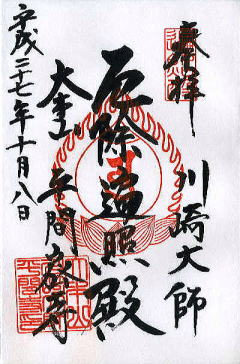 奉拝
川崎大師
厄除遍照殿
大本山
平間教寺
平成二十七年十月八日